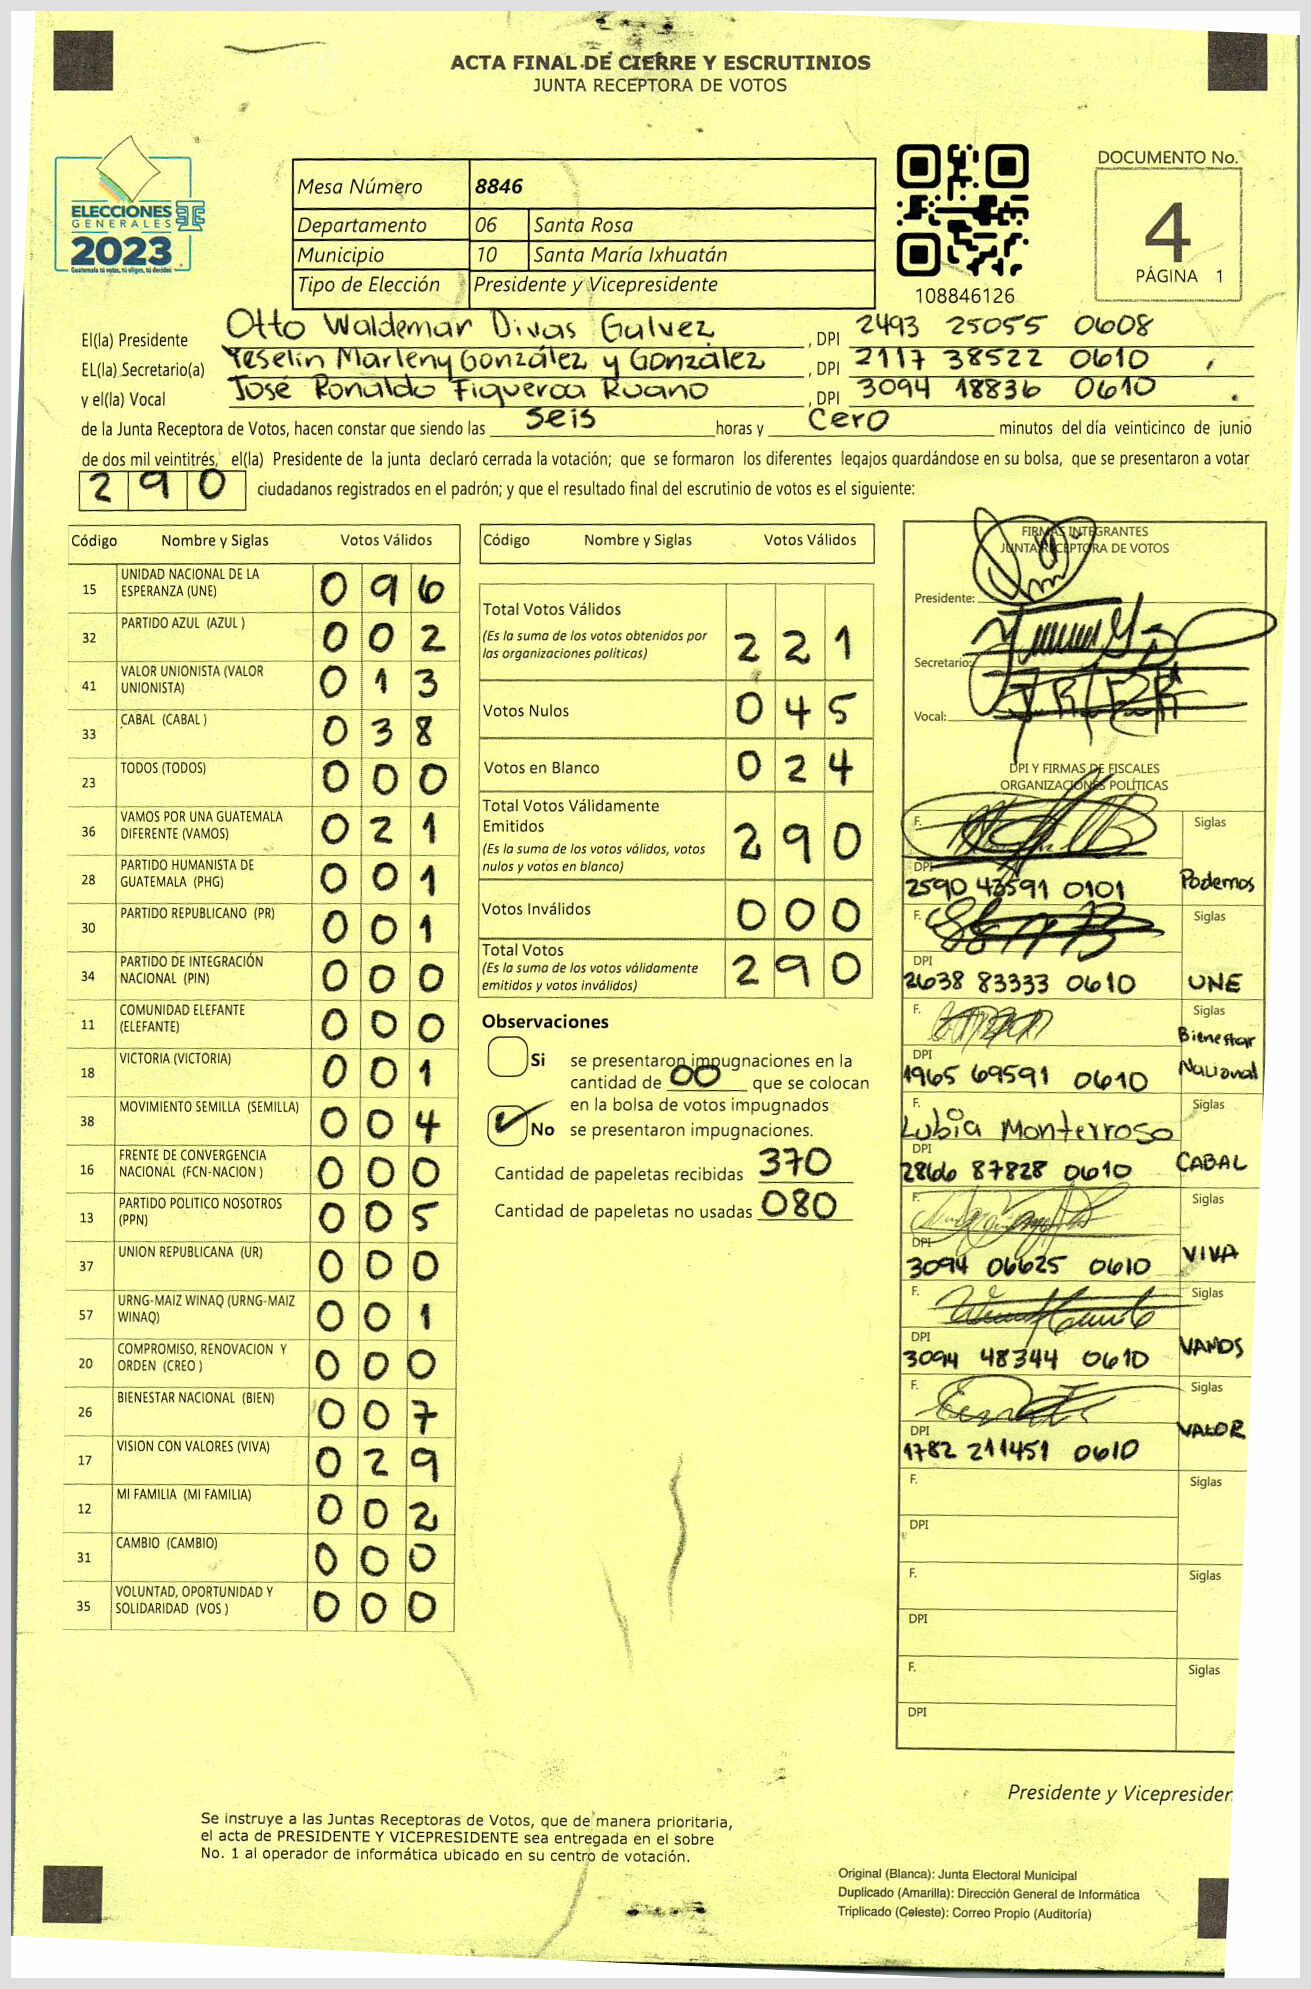 ACTA FINAL DE CIERRE Y ESCRUTINIOS
JUNTA RECEPTORA DE VOTOS
ELECCIONES
GENERALES
2023
Guatemala tú votas, tú eliges, tú decides
Mesa Número 8846
Departamento 06 Santa Rosa
Municipio 10 Santa María Ixhuatán
Tipo de Elección Presidente y Vicepresidente
108846126
DOCUMENTO No.
4
PÁGINA 1
El(la) Presidente Otto Waldemar Divas Galvez, DPI 2493 25055 0608
EL(la) Secretario(a) Yeselin Marleny González y González, DPI 2117 38522 0610,
y el(la) Vocal José Ronaldo Figueroa Ruano, DPI 3094 18836 0610.
de la Junta Receptora de Votos, hacen constar que siendo las seis horas y cero minutos del día veinticinco de junio
de dos mil veintitrés, el(la) Presidente de la junta declaró cerrada la votación; que se formaron los diferentes legajos guardándose en su bolsa, que se presentaron a votar
290 ciudadanos registrados en el padrón; y que el resultado final del escrutinio de votos es el siguiente:
Código Nombre y Siglas Votos Válidos
15 UNIDAD NACIONAL DE LA ESPERANZA (UNE) 096
32 PARTIDO AZUL (AZUL ) 002
41 VALOR UNIONISTA (VALOR UNIONISTA) 013
33 CABAL (CABAL ) 038
23 TODOS (TODOS) 000
36 VAMOS POR UNA GUATEMALA DIFERENTE (VAMOS) 021
28 PARTIDO HUMANISTA DE GUATEMALA (PHG) 001
30 PARTIDO REPUBLICANO (PR) 001
34 PARTIDO DE INTEGRACIÓN NACIONAL (PIN) 000
11 COMUNIDAD ELEFANTE (ELEFANTE) 000
18 VICTORIA (VICTORIA) 001
38 MOVIMIENTO SEMILLA (SEMILLA) 004
16 FRENTE DE CONVERGENCIA NACIONAL (FCN-NACION ) 000
13 PARTIDO POLITICO NOSOTROS (PPN) 005
37 UNION REPUBLICANA (UR) 000
57 URNG-MAIZ WINAQ (URNG-MAIZ WINAQ) 001
20 COMPROMISO, RENOVACION Y ORDEN (CREO ) 000
26 BIENESTAR NACIONAL (BIEN) 007
17 VISION CON VALORES (VIVA) 029
12 MI FAMILIA (MI FAMILIA) 002
31 CAMBIO (CAMBIO) 000
35 VOLUNTAD, OPORTUNIDAD Y SOLIDARIDAD (VOS ) 000
Código Nombre y Siglas Votos Válidos
Total Votos Válidos
(Es la suma de los votos obtenidos por
las organizaciones políticas) 221
Votos Nulos 045
Votos en Blanco 024
Total Votos Válidamente
Emitidos
(Es la suma de los votos válidos, votos
nulos y votos en blanco) 290
Votos Inválidos 000
Total Votos
(Es la suma de los votos válidamente
emitidos y votos inválidos) 290
Observaciones
Si se presentaron impugnaciones en la
cantidad de 00 que se colocan
en la bolsa de votos impugnados
No se presentaron impugnaciones.
Cantidad de papeletas recibidas 370
Cantidad de papeletas no usadas 080
FIRMAS INTEGRANTES
JUNTA RECEPTORA DE VOTOS
Presidente:
Secretario:
Vocal:
DPI Y FIRMAS DE FISCALES
ORGANIZACIONES POLÍTICAS
F. Siglas
DPI
2590 43591 0101 Podemos
F. Siglas
DPI
2638 83333 0610 UNE
F. Siglas
Bienestar
DPI
1965 69591 0610 Nacional
F. Siglas
Lubia Monterroso
DPI
2866 87828 0610 CABAL
F. Siglas
DPI
3094 06625 0610 VIVA
F. Siglas
DPI
3094 48344 0610 VAMOS
F. Siglas
DPI
1782 211451 0610 VALOR
F. Siglas
DPI
F. Siglas
DPI
F. Siglas
DPI
Presidente y Vicepresiden
Se instruye a las Juntas Receptoras de Votos, que de manera prioritaria,
el acta de PRESIDENTE Y VICEPRESIDENTE sea entregada en el sobre
No. 1 al operador de informática ubicado en su centro de votación.
Original (Blanca): Junta Electoral Municipal
Duplicado (Amarilla): Dirección General de Informática
Triplicado (Celeste): Correo Propio (Auditoría)